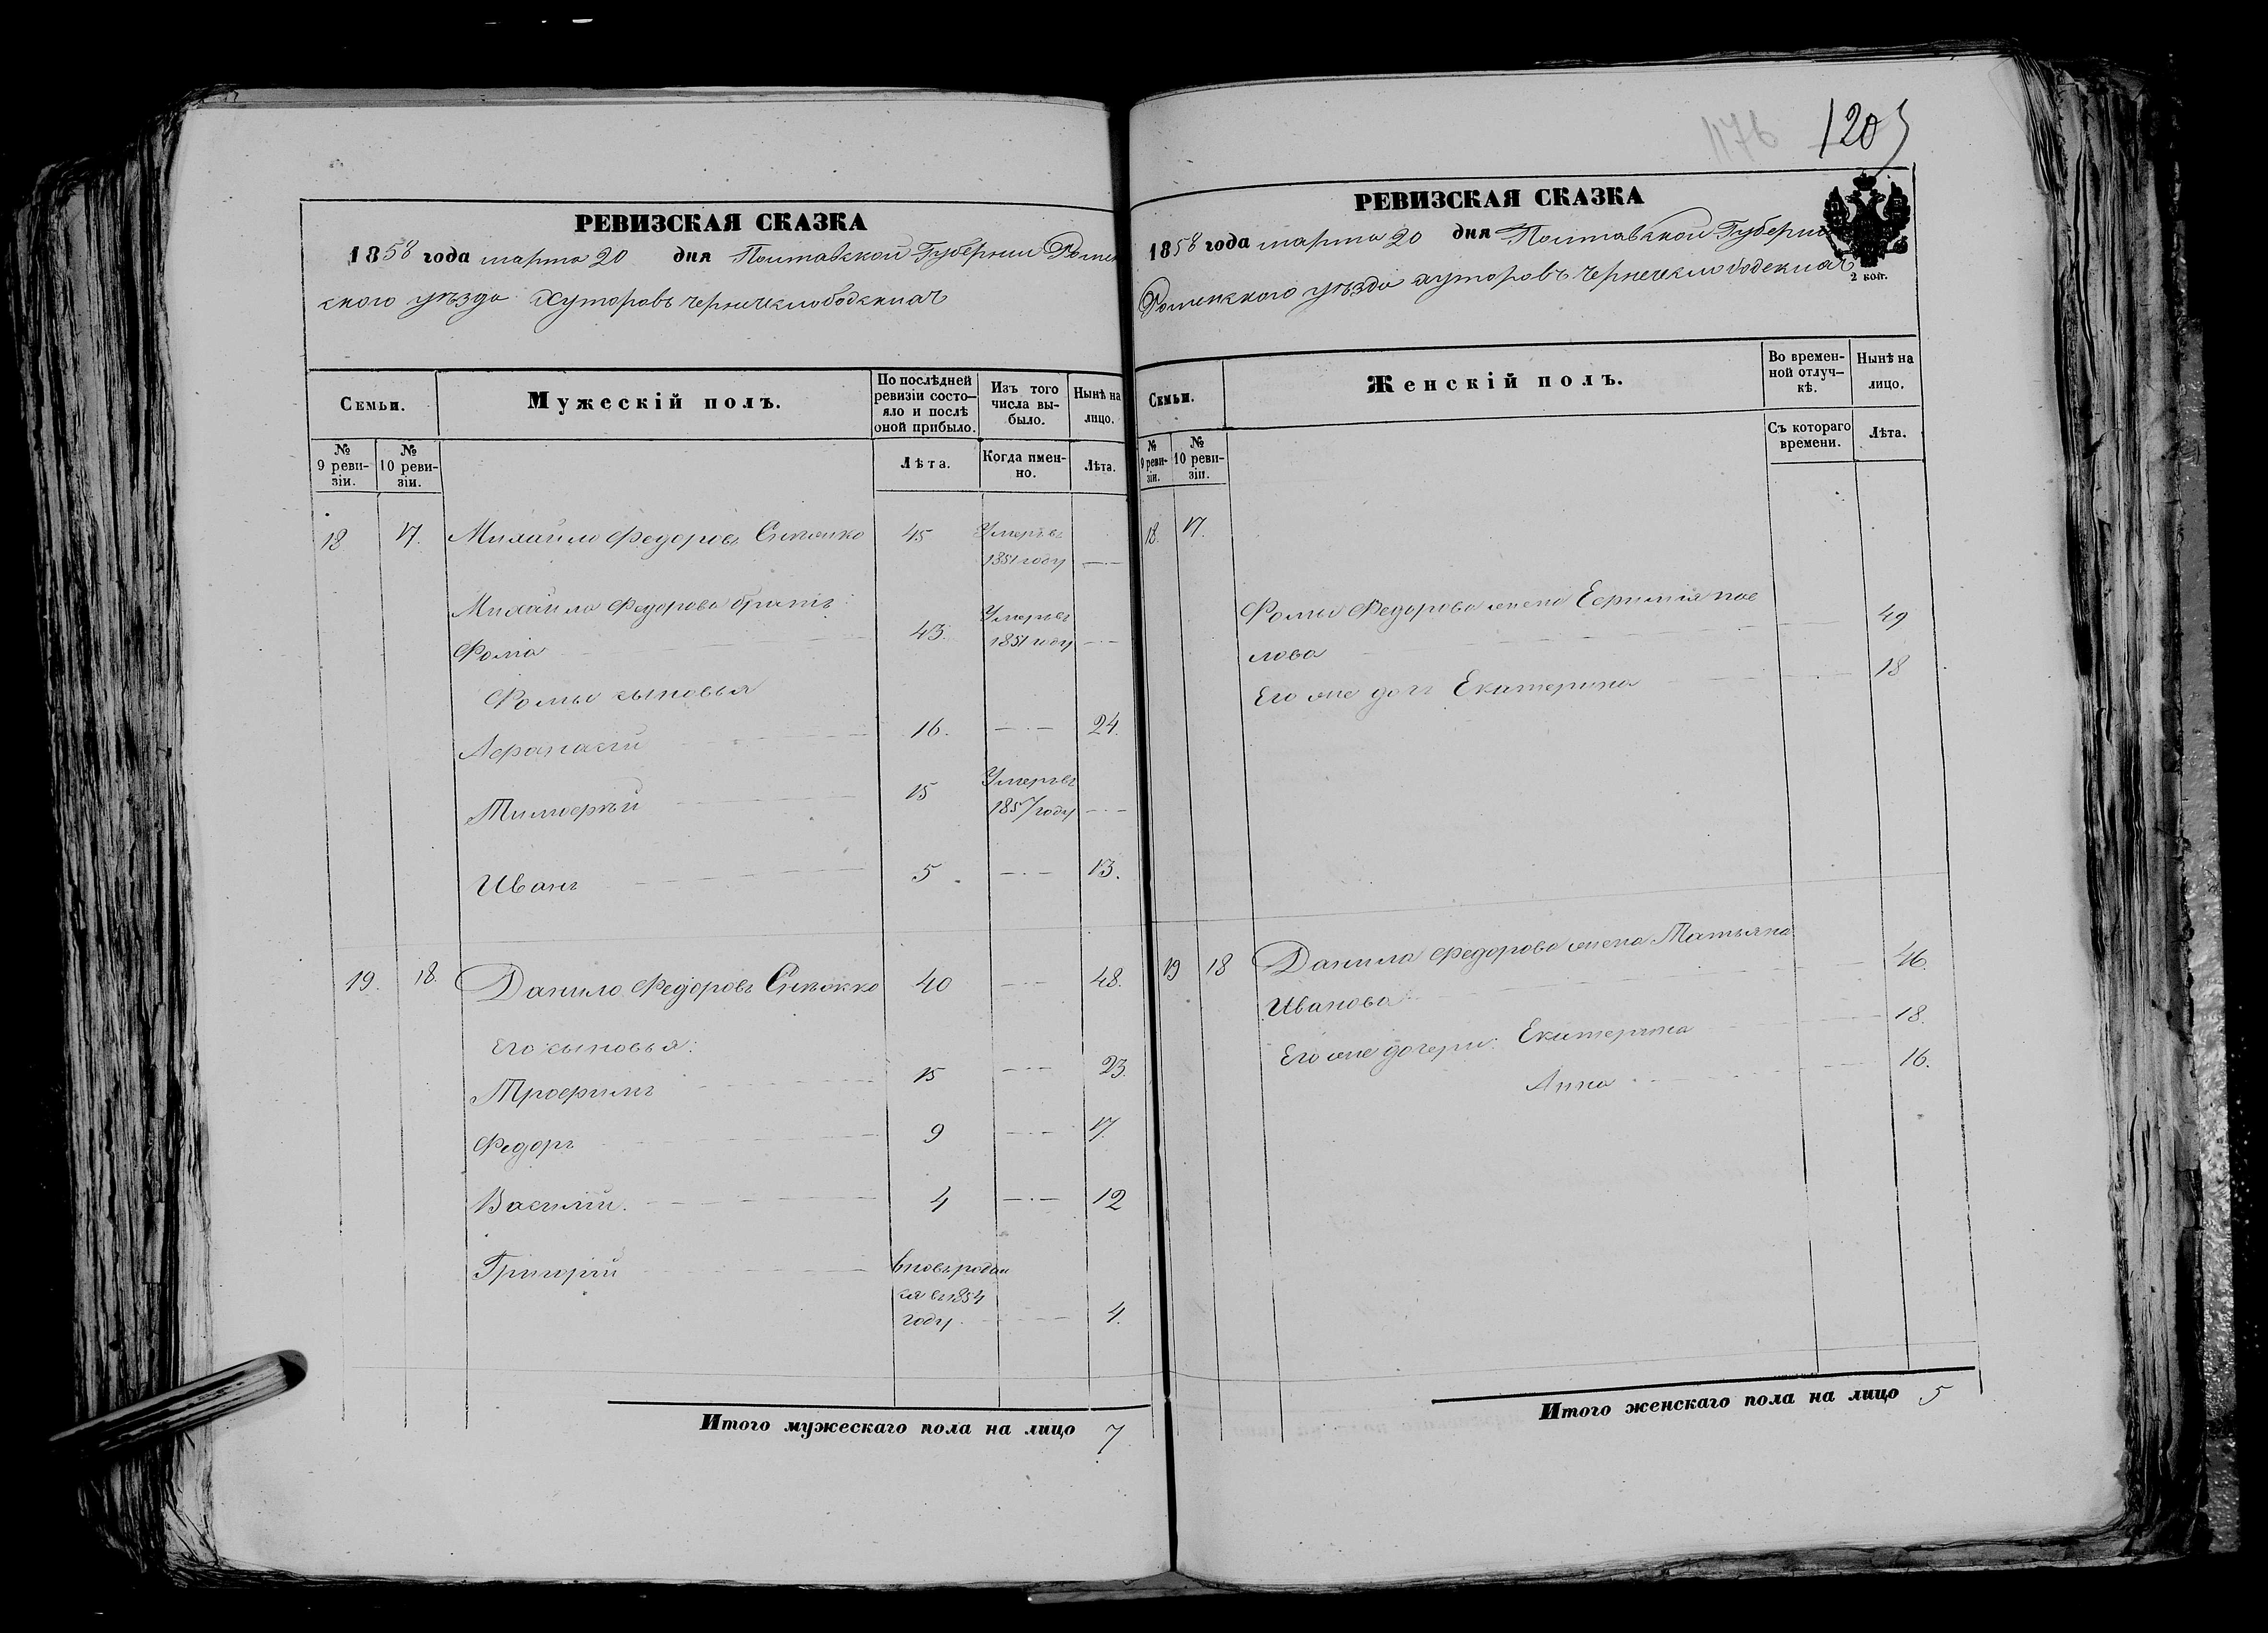 1176 1205
РЕВИЗСКАЯ СКАЗКА
1858 года марта 20 дня Полтавской Губернии Ромен
ского уѣзда Хуторовъ
Семьи.
Мужескій полъ.
По послѣдней ревизіи состо-
яло и послѣ оной прибыло.
Изъ того числа вы-
было.
Нынѣ на лицо.
№ 9 реви-
зіи.
№ 10 реви-
зіи.
Лѣта.
Когда имен-
но.
Лѣта.
18 17. Михайло Федоровъ 45 Умеръ въ
1851 году
Михайла Федорова братъ
Фома 43. Умеръ въ
1851 году
Фомы сыновья
Афанасій 16. 24.
Тимофѣй 15 Умеръ въ
1857 году
Иванъ 5. 13.
19. 18. Данило Федоровъ 40 48.
Его сыновья:
Трофимъ 15 23.
Федоръ 9 17.
Василій. 4 12
Григорій вновь родил
ся въ 1854
году. 4.
Итого мужескаго пола на лицо 7
РЕВИЗСКАЯ СКАЗКА
1858 года марта 20 дня Полтавской Губерніи
Роменского уѣзда хуторовъ
2 коп.
Семьи.
Женскій полъ.
Во времен-
ной отлуч-
кѣ.
Нынѣ на лицо.
№ 9 реви-
зіи.
№ 10 реви-
зіи.
Съ котораго времени.
Лѣта.
18. 17.
Фомы Федорова жена Ефимія
лова 49
Его же дочь Екатерина 18
19 18 Данила Федорова жена Татьяна
Иванова 46.
Его же дочери: Екатерина 18.
Анна 16.
Итого женскаго пола на лицо 5